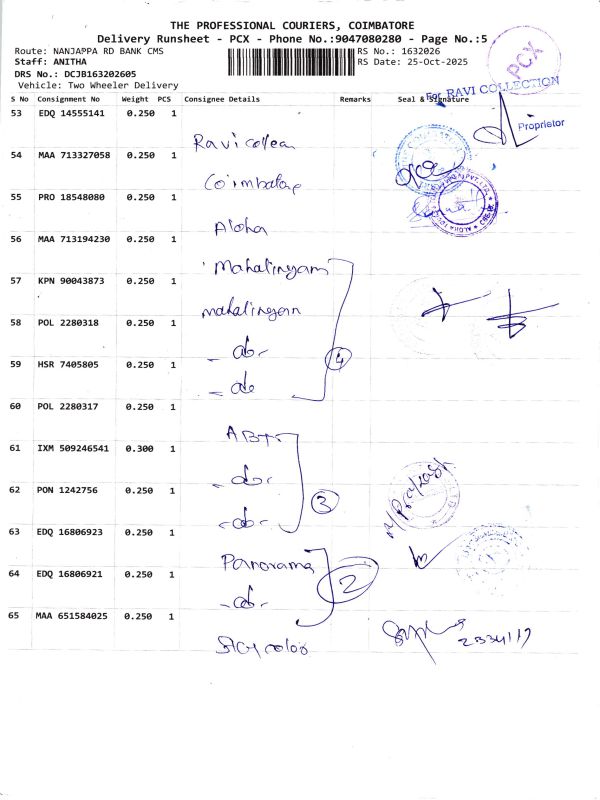 THE PROFESSIONAL COURIERS, COIMBATORE
Delivery Runsheet - PCX - Phone No.:9047080280 - Page No.:5
Route: NANJAPPA RD BANK CMS
RS No.: 1632026
Staff: ANITHA
RS Date: 25-Oct-2025
DRS No.: DCJB163202605
Vehicle: Two Wheeler Delivery
PCX
For RAVI COLLECTION
Proprietor
S No Consignment No Weight PCS Consignee Details Remarks Seal & Signature
53 EDQ 14555141 0.250 1
Ravi
54 MAA 713327058 0.250 1
Coimbatore
55 PRO 18548080 0.250 1
Aloha
56 MAA 713194230 0.250 1
Mahalingam
57 KPN 90043873 0.250 1
mahalingam
58 POL 2280318 0.250 1
- do -
59 HSR 7405805 0.250 1
- do
4
60 POL 2280317 0.250 1
ABT
61 IXM 509246541 0.300 1
- do -
62 PON 1242756 0.250 1
- do -
3
63 EDQ 16806923 0.250 1
Panorama
64 EDQ 16806921 0.250 1
- do -
2
65 MAA 651584025 0.250 1